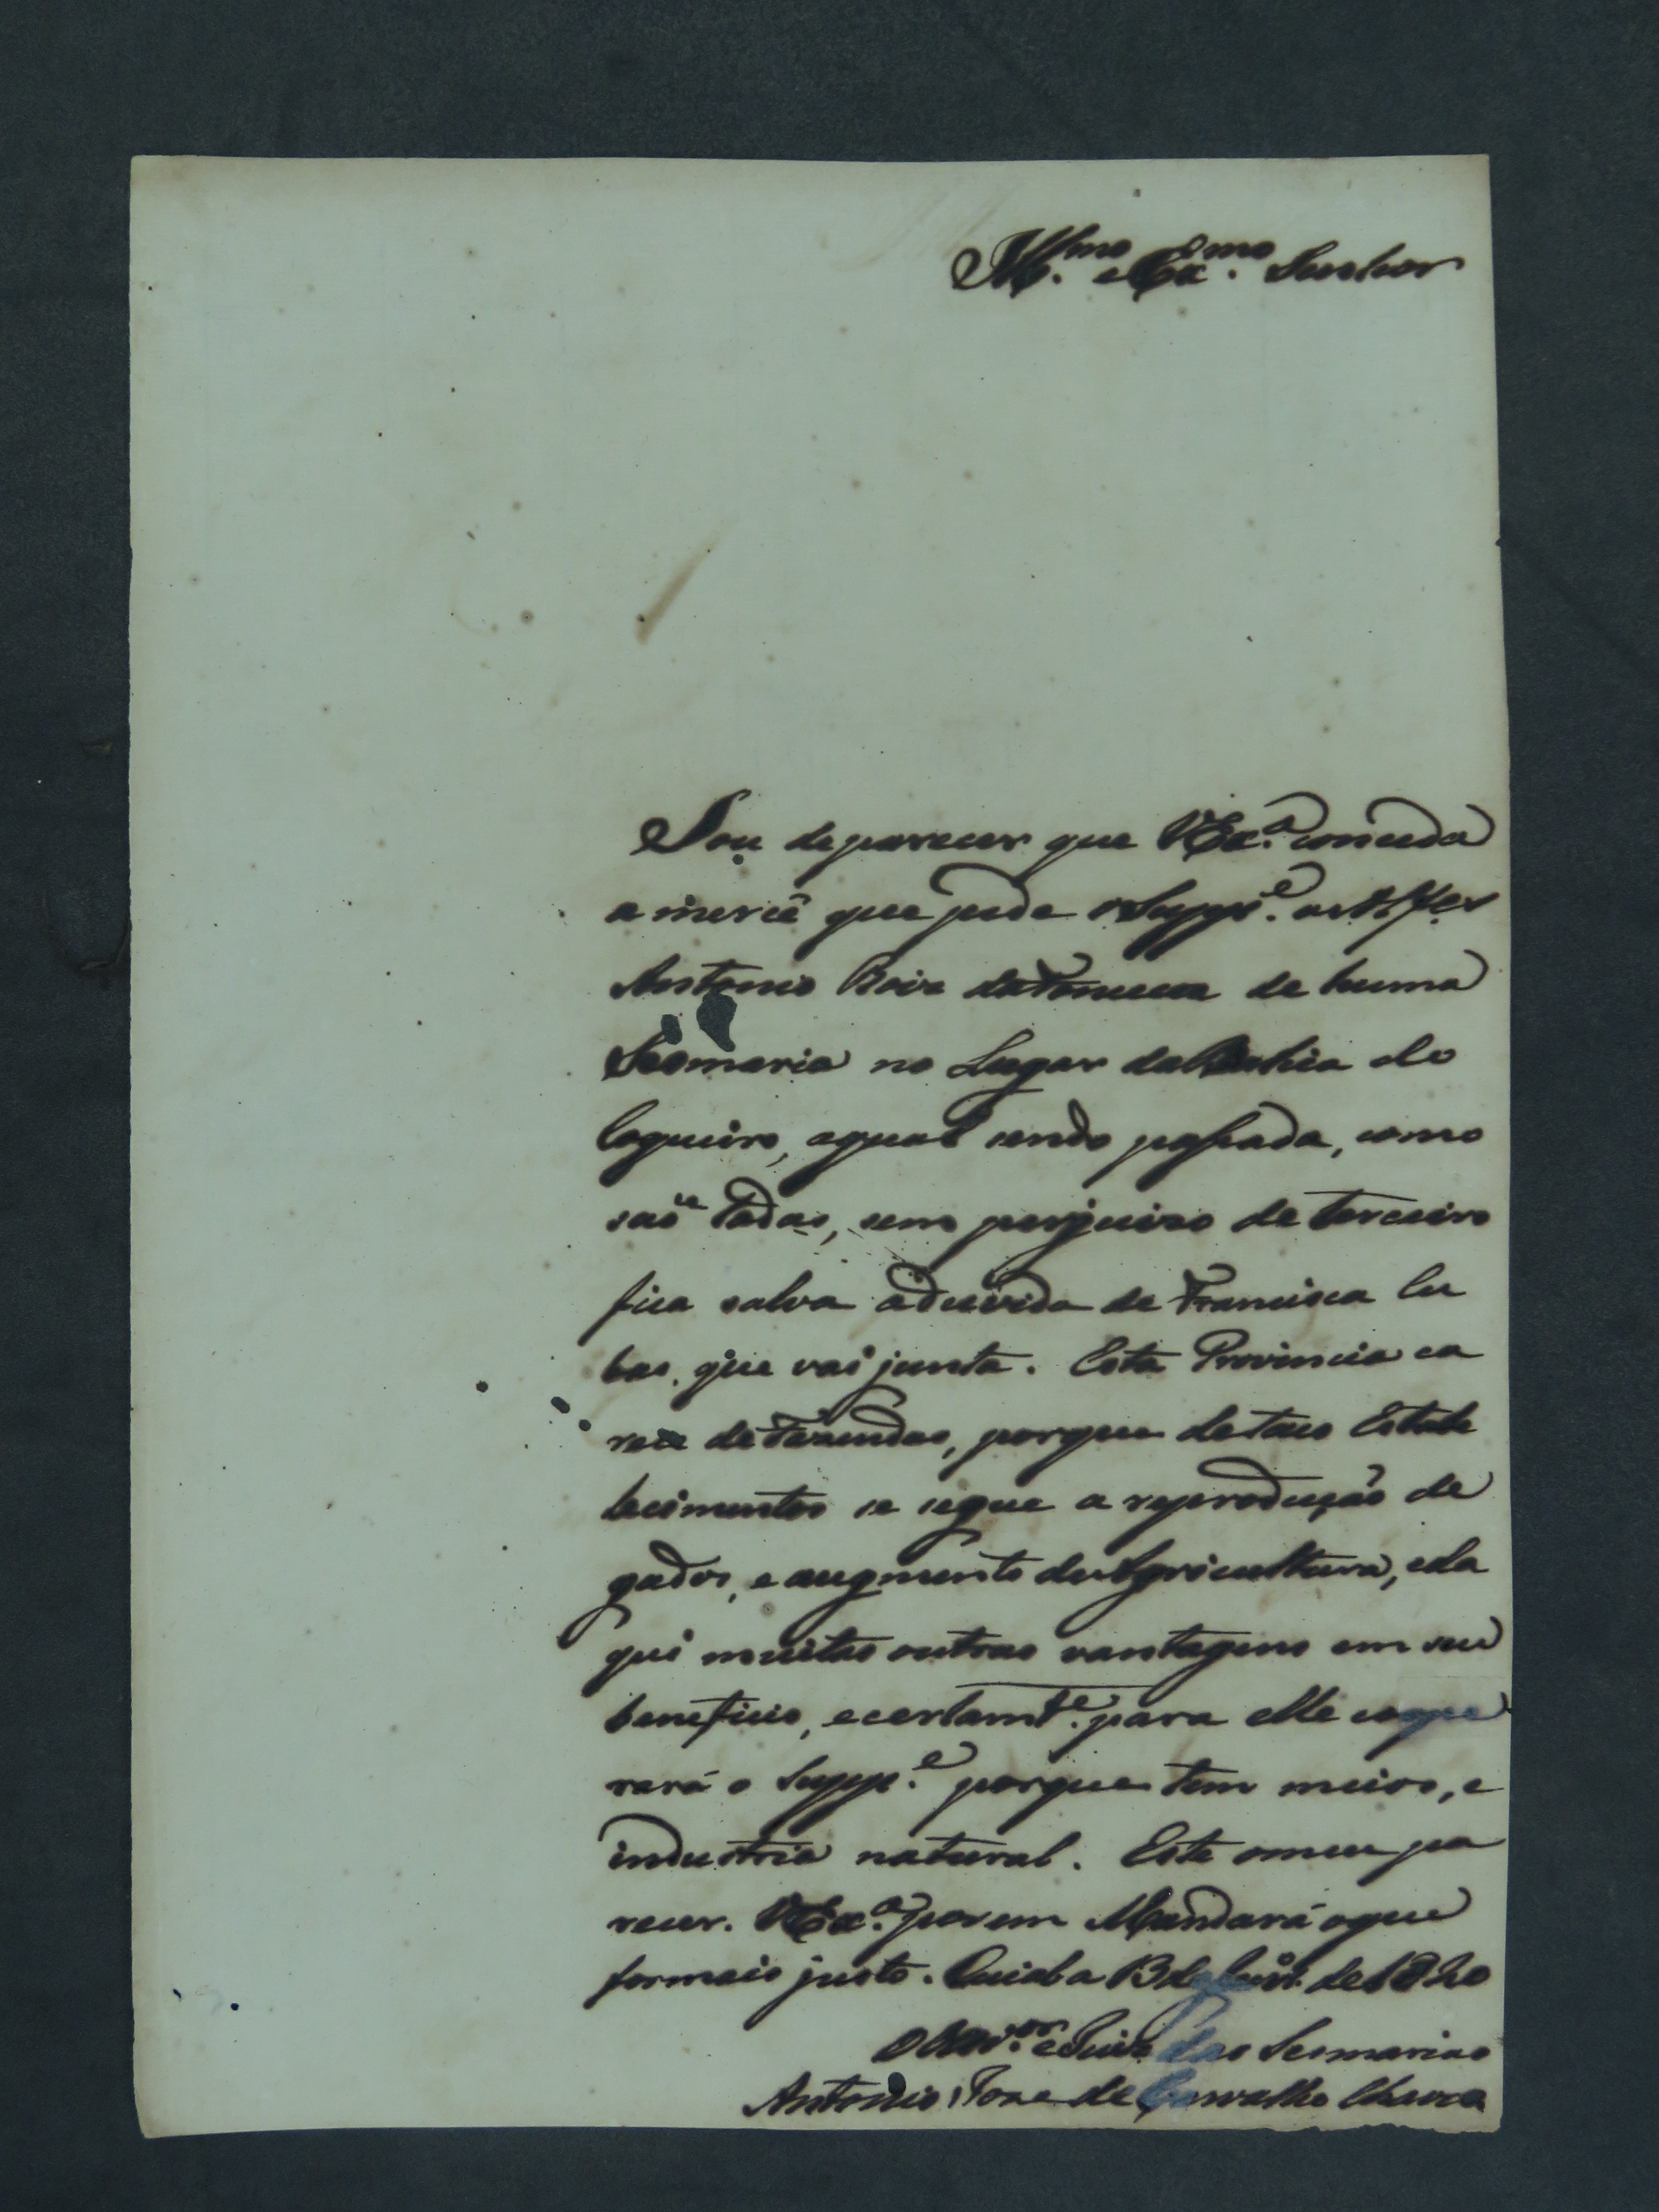 Ill.mo e Ex.mo Senhor
Sou de parecer que VEx.a conceda
a mercê que pede o Supp.e o Alfes
Antonio da Fonceca de huma
Sesmaria no Lugar da Bahia do
Coqueiro, aqual sendo passada, como
saõ todas, sem perjuizo de terceiro
fica salva aduvida de Francisca Cu
bas, que vai junta. Esta Provincia ca
rece de Fazendas, porque de taes Estabe
lecimentos se segue a reprodução de
gados, e augmento da Agricultura, e da
qui muitas outras vantagens em seu
beneficio, e certam.te para elle
rará o Supp.e porque tem meios, e
industria natural. Este omeu pa
recer. VEx.a porem Mandará oque
for mais justo. Cuiaba 13 de de 1820
O Ouv.or e Juiz das Sesmarias
Antonio Joze de Carvalho Chaves